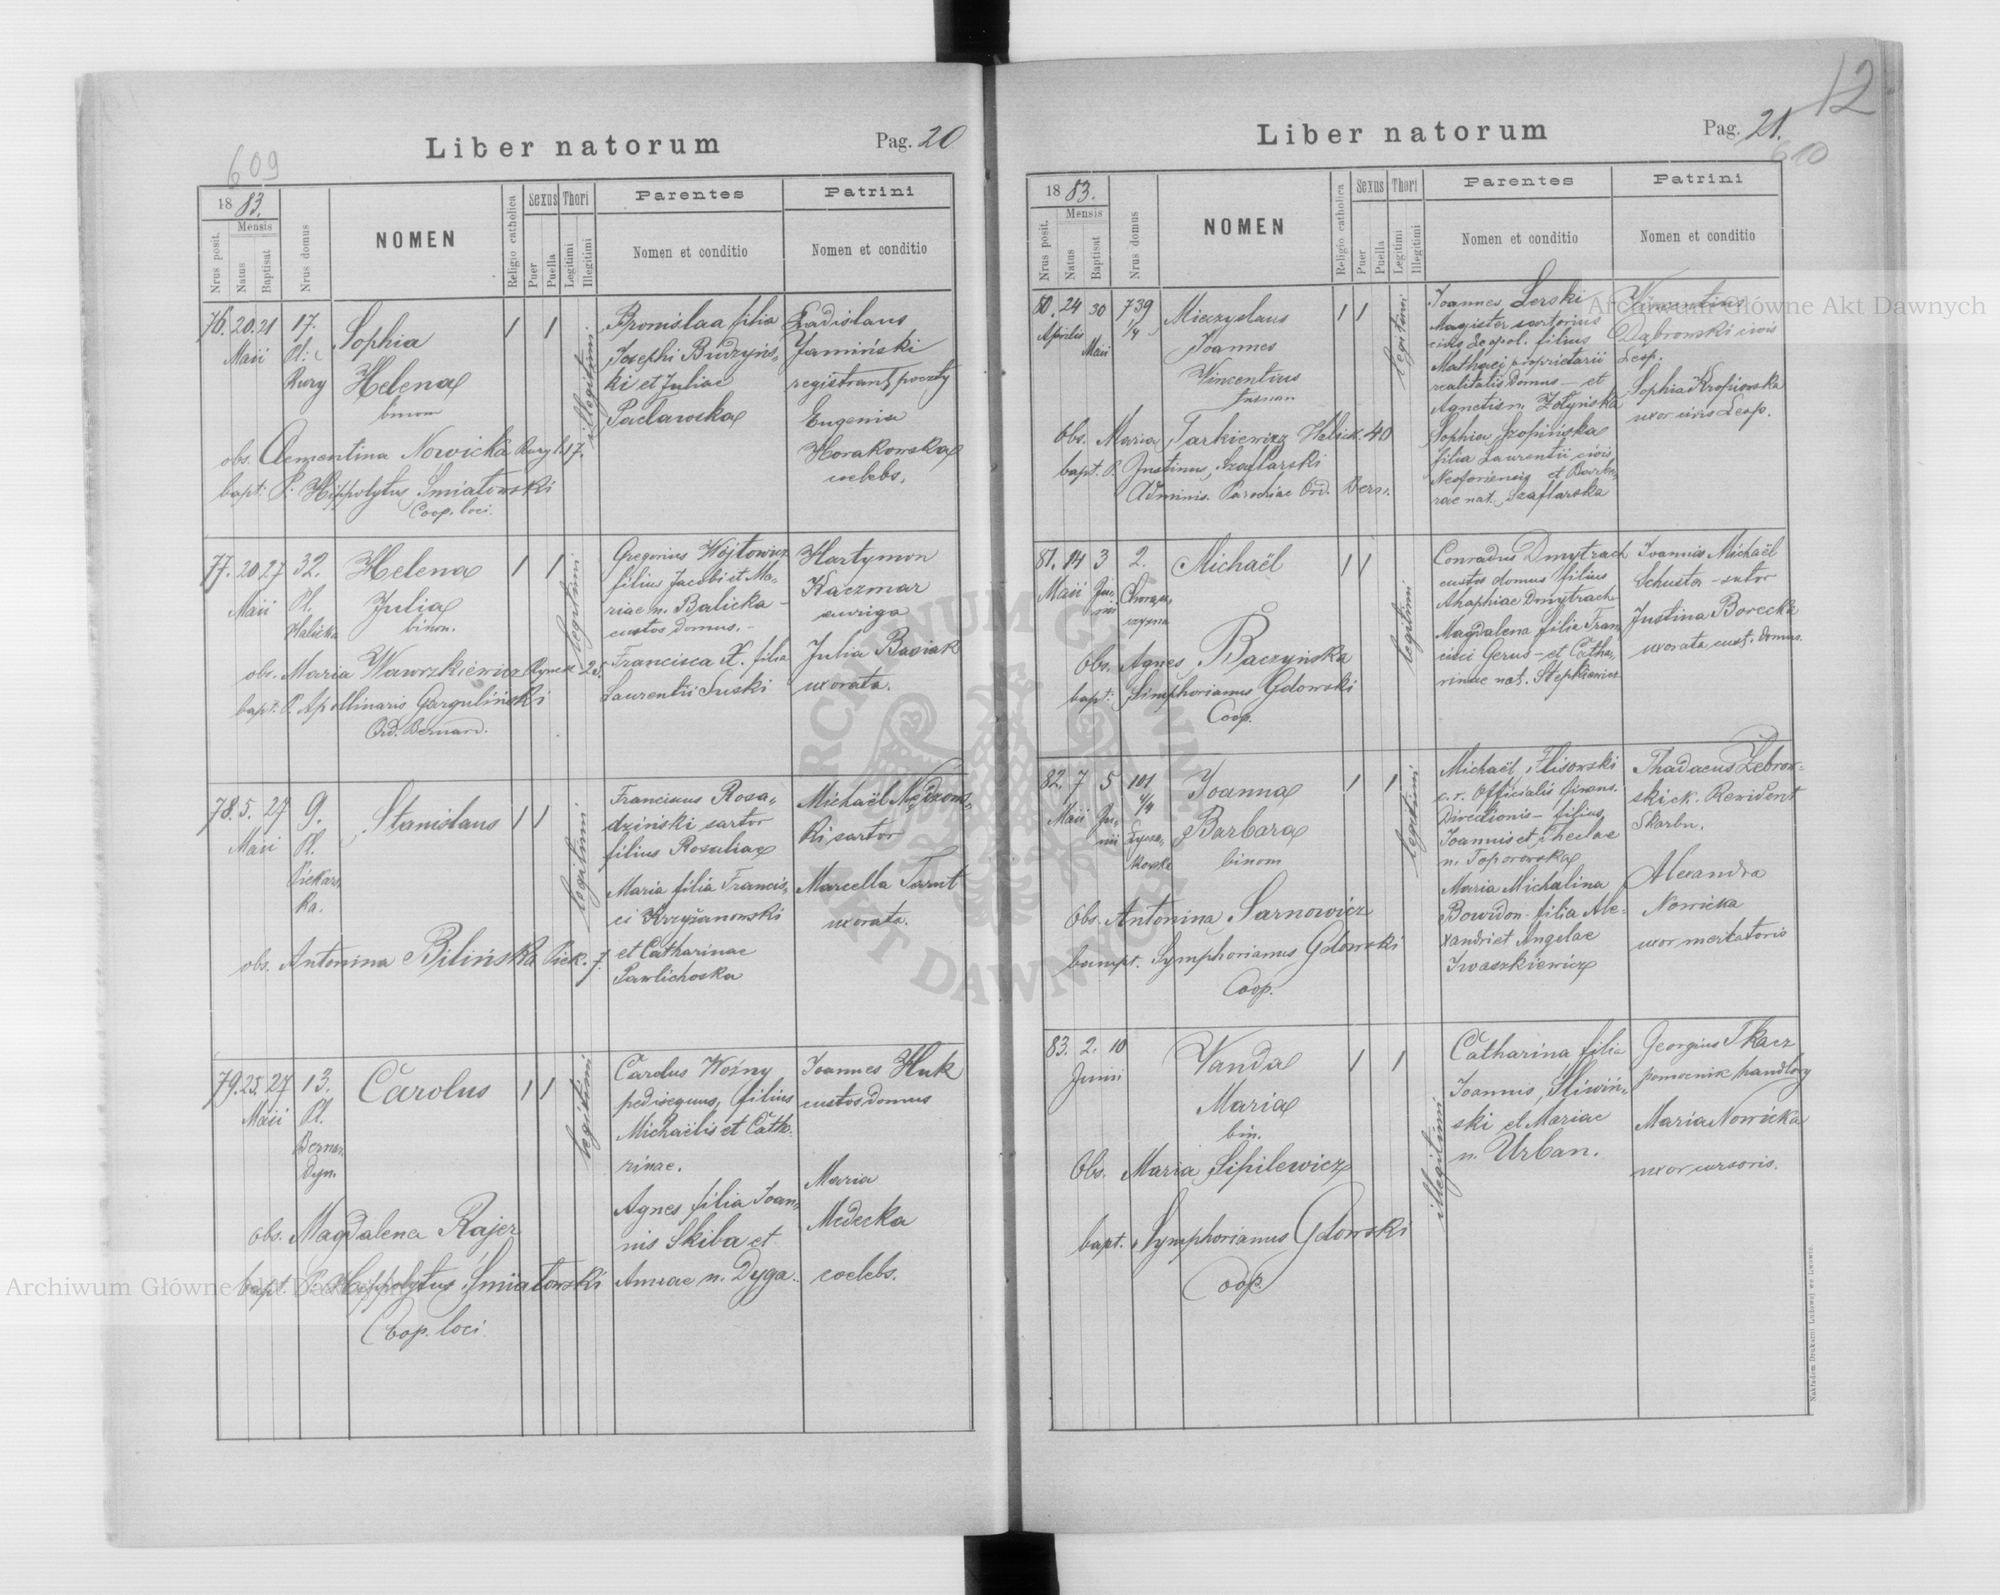 Liber natorum
Pag. 20
609
18 83.
Nrus posit.
Mensis
Natus
Baptisat
Nrus domus
NOMEN
Religio catholica
Sexus
Puer
Puella
Thori
Legitimi
Illegitimi
Parentes
Nomen et conditio
Patrini
Nomen et conditio
76. 20. 21
Maii
17.
Rury
Sophia
Helena
binom
1 1
illegitimi
Bronislaa filia
Josephi Budzyńs-
ki et Juliae
Pacławska
Ladislaus
Jamiński
registrant poczty
Eugenia
Horakowska
coelebs.
obs. Clementina Nowicka Rury l. 17.
bapt. P. Hippolytus Śmiatowski
Coop. loci.
77. 20. 27
Maii
32.
Pl.
Halicka
Helena
Julia
binom.
1 1
legitimi
Gregorius Wojtowicz
filius Jacobi et Ma-
riae n. Balicka -
custos domus. -
Francisca X. filia
Laurentii Suski
Hartymon
Kaczmar
auriga
Julia Basiak
uxorata.
obs. Maria Wawrzkiewicz Rynek 25
bapt. P. Apollinaris Garguliński
Ord. Bernard.
78. 5. 27
Maii
9.
Pl.
Piekars
ka.
Stanislaus
1 1
legitimi
Franciscus Rosa-
dziński sartor
filius Rosaliae
Maria filia Francis-
ci Krzyżanowski
et Catharinae
Pawlichoska
Michaël
ki sartor
Marcella
uxorata.
obs. Antonina Bilińska Piek. 7.
79. 25. 27
Maii
13.
Pl.
Bernar
Dym.
Carolus
1 1
legitimi
Carolus Woźny
pedisequus, filius
Michaëlis et Catha-
rinae.
Agnes filia Joan-
nis Skiba et
Annae n. Dyga.
Joannes Huk
custos domus
Maria
Medecka
coelebs.
obs. Magdalena Rajer
bapt. P. Hippolytus Śmiatowski
Coop. loci
Liber natorum
Pag. 21.
12
610
18 83.
Nrus posit.
Mensis
Natus
Baptisat
Nrus domus
NOMEN
Religio catholica
Sexus
Puer
Puella
Thori
Legitimi
Illegitimi
Parentes
Nomen et conditio
Patrini
Nomen et conditio
80. 24 30
Aprilis
Maii
739
1/4
Mieczyslaus
Joannes
Vincentius
1 1
legitimi
Joannes Lerski
Magister sartorius
civis Leopol. filius
Mathaei proprietarii
realitatis domus - et
Agnetis n. Żołyńska
Sophia Szopińska
filia Laurentii civis
Neoforiensis et Barba-
rae nat. Szaflarska
Vincentius
Dąbrowski civis
Leop.
Sophia Kropiowska
uxor civis Leop.
Obs. Maria Tarkiewicz Halick. 40
bapt. P. Justinus Szaflarski
Adminis. Parochiae Ord. Bern.
81. 14 3
Maii Ju-
nii
2.
Chorąż
Michaël
1 1
legitimi
Conradus Dmytrach
custos domus filius
Ahaphiae Dmytrach
Magdalena filia Fran
cisci Gerus - et Catha-
rinae nat. Stepkiewicz
Joannis Michaël
Schuster - sutor
Justina Borecka
uxorata cust. domus.
Obs. Agnes Baczyńska
bapt. Simphorianus Gdowski
Coop.
82. 7 5
Maii Ju-
nii
101
4/4
Łycza-
kowska
Joanna
Barbara
binom
1 1
legitimi
Michaël Flisowski
c. r. Officialis finans.
Directionis - filius
Joannis et Theclae
n. Toporowska
Maria Michalina
Bowidon - filia Ale-
xandri et Angelae
Iwaszkiewicz
Thadaeus Żebrow-
ski c. k. Revident
Skarbu.
Alexandra
Nowicka
uxor mercatoris
Obs. Antonina Sarnowicz
bampt. Symphorianus Gdowski
Coop.
83. 2. 10
Junii
Vanda
Maria
bin.
1 1
illegitimi
Catharina filia
Joannis Śliwiń-
ski et Mariae
n. Urban.
Georgius Tkacz
pomocnik handlowy
Maria Nowicka
uxor cursoris.
Obs. Maria Sipilewicz
bapt. Symphorianus Gdowski
Coop.
Nakładem Drukarni Ludowej we Lwowie.
Archiwum Główne Akt Dawnych
Archiwum Główne Akt Dawnych
ARCHIWUM GŁÓWNE
AKT DAWNYCH